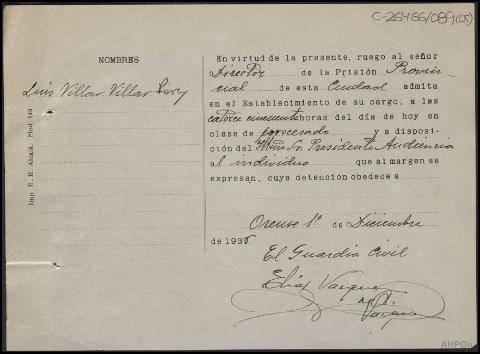 C-26466/089(05)
NOMBRES
Luis Villar Villar
Imp. E. R. Alcalá. Mod. 143
En virtud de la presente, ruego al señor
Director de la Prisión Provin-
cial de esta Ciudad admita
en el Establecimiento de su cargo, a las
catorce cincuenta horas del día de hoy en
clase de procesado y a disposi-
ción del Iltmo Sr. Presidente Audiencia
al individuo que al margen se
expresan, cuya detención obedece a
Orense 1º de Diciembre
de 193
El Guardia Civil
Elias Vazquez
Vazquez
AHPOu